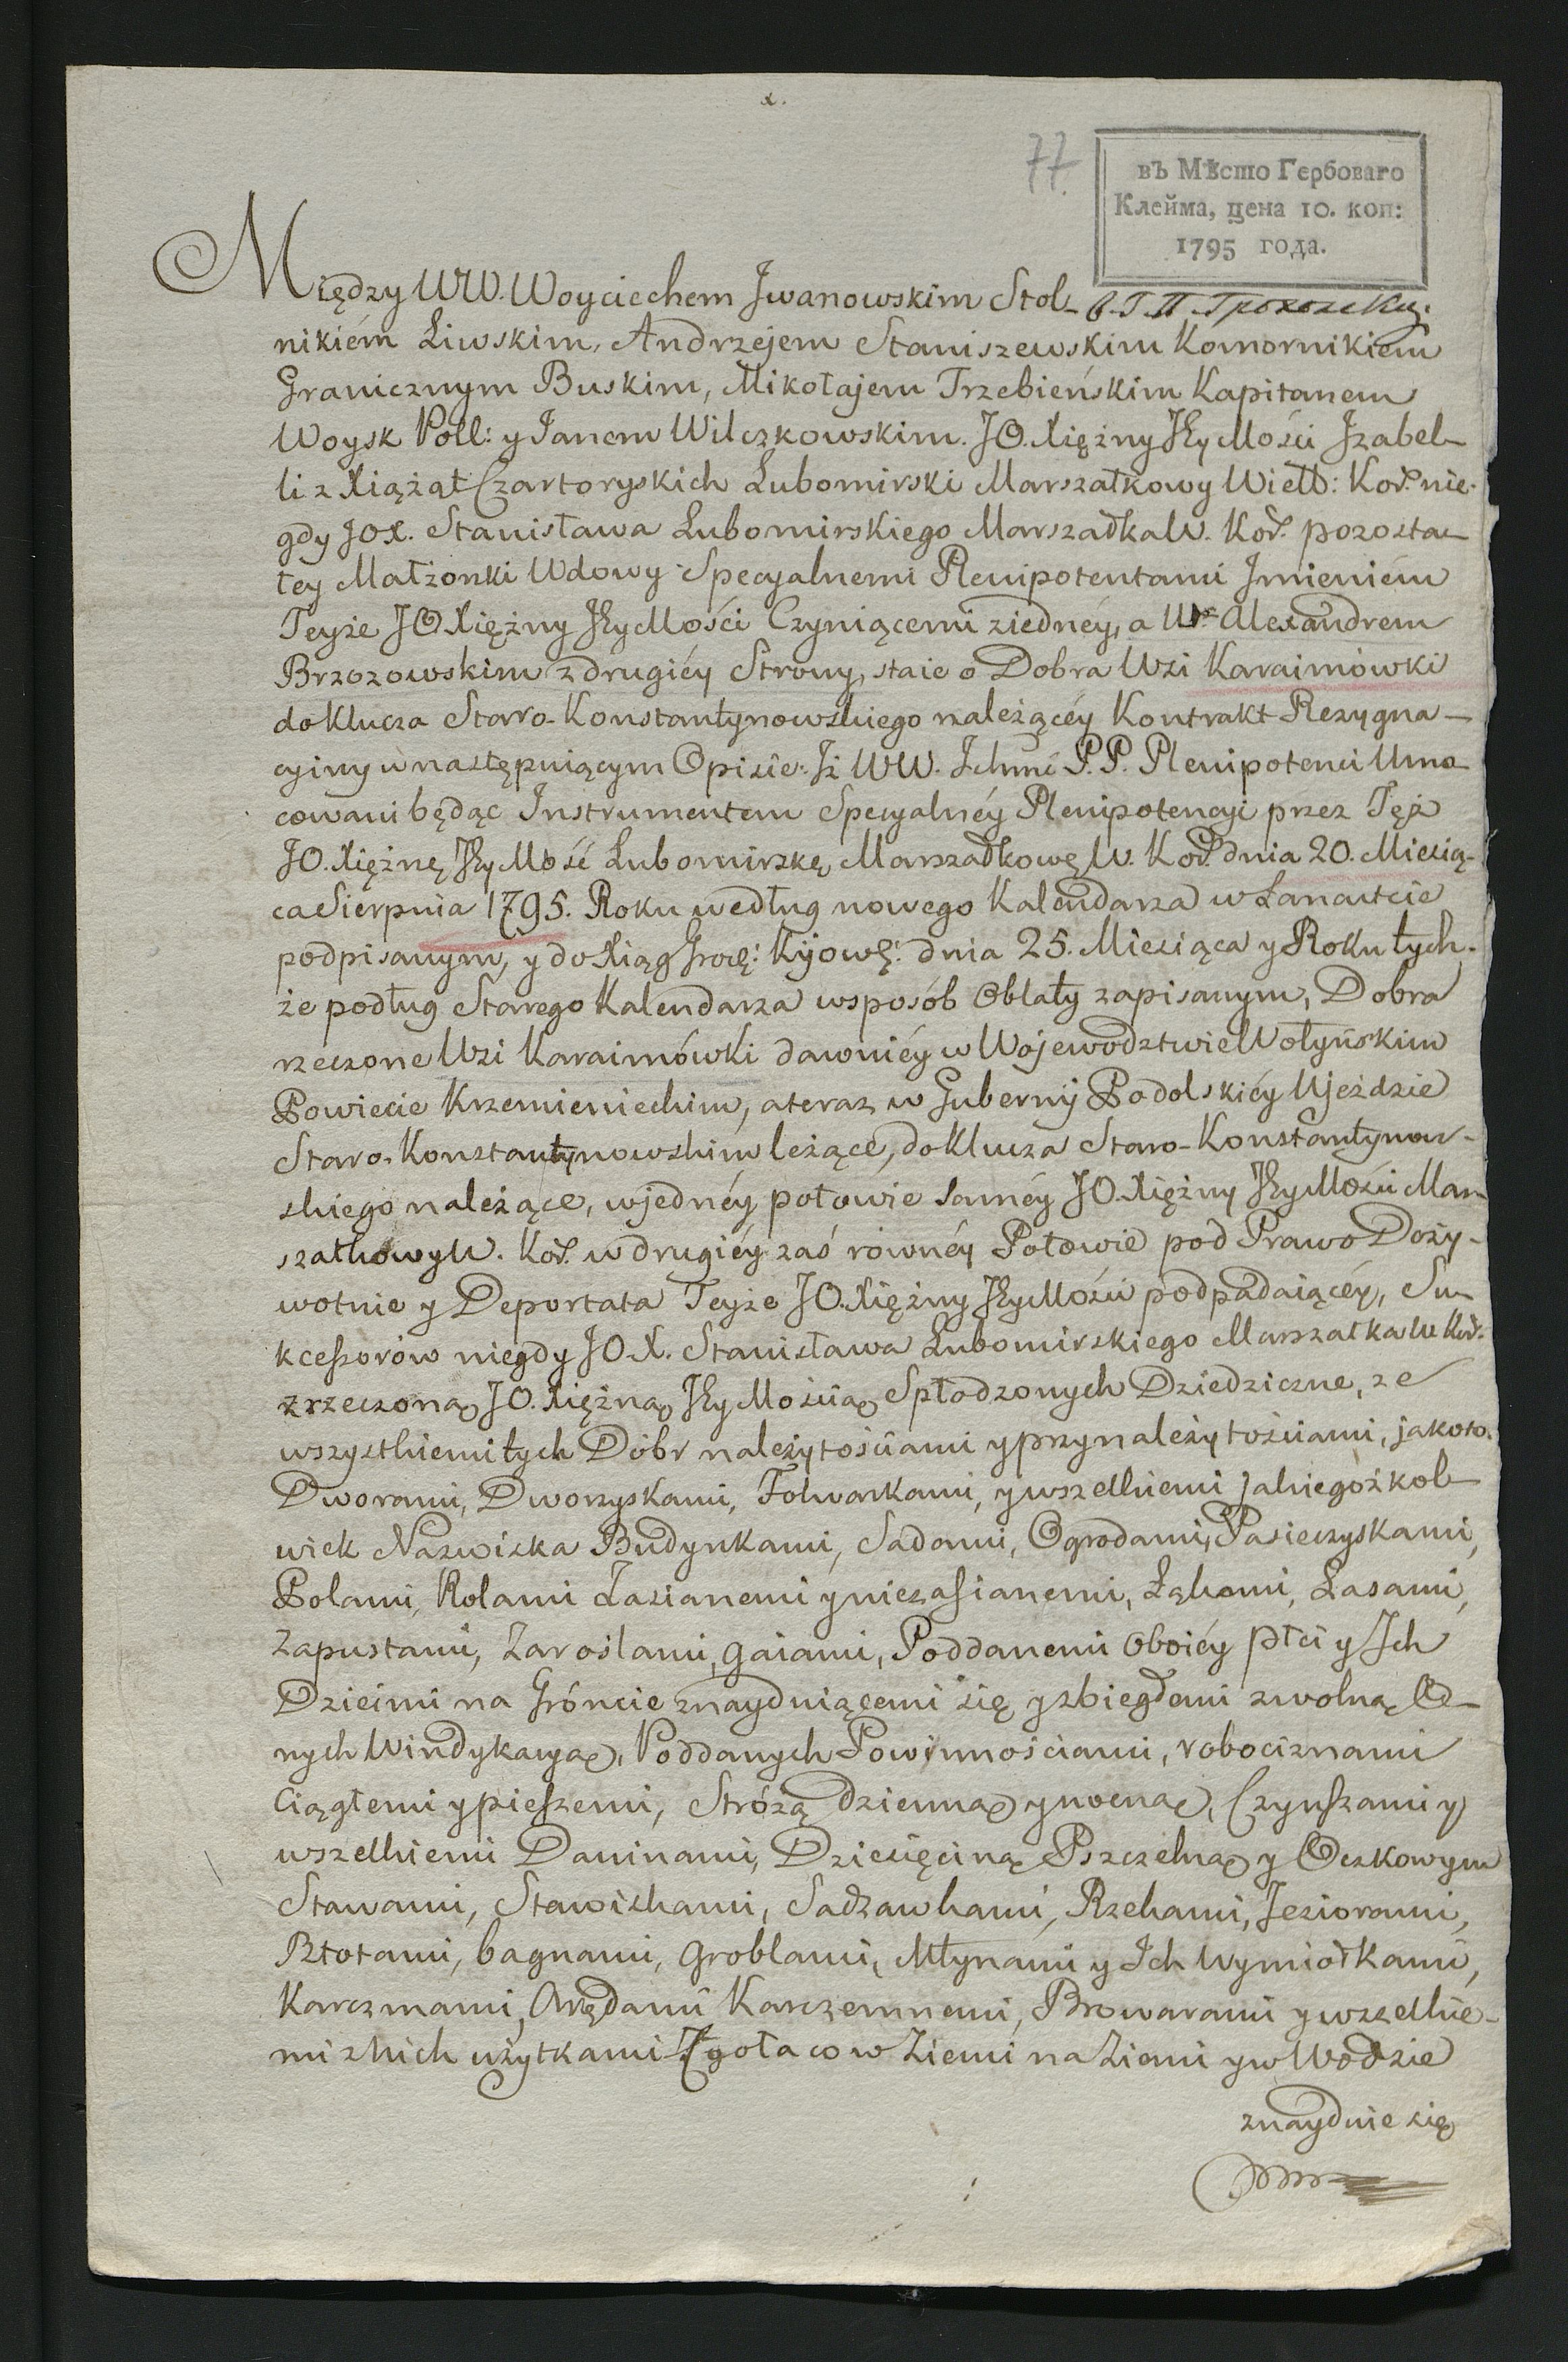 x.
77.
въ Мѣсто Гербоваго
Клейма, цена 10. коп:
1795 года.
Między WW. Woyciechem Jwanowskim Stol-
nikiém Liwskim, Andrzejem Staniszewskim Komornikiem
Granicznym Buskim, Mikołajem Trzebieńskim Kapitanem
Woysk Poll: y Janem Wilczkowskim. JO. Xiężny Jły Mości Jzabel-
li z Xiążąt Czartoryskich Lubomirski Marszałkowy Wielb: Kor. nie-
gdy JOX. Stanisława Lubomirskiego Marszałka W. Kor. pozosta-
łey Małżonki Wdowy Specyalnemi Plenipotentami Jmieniém
Teyże JO Xiężny JłyMości Czyniącemi ziednéy, a Ur Alexandrem
Brzozowskim z drugiéy Strony, staie o Dobra Wsi Karaimówki
do Klucza Staro-Konstantynowskiego należącéy Kontrakt Rezygna-
cyiny w następuiącym Opisie: Jż WW. Ichmć P.P. Plenipotenci Umo-
cowani będąc Instrumentem Specyalnéy Plenipotencyi przez Tęż
JO. Xiężnę Jły Mość Lubomirską Marszałkowę W. Kor. dnia 20. Miesią-
ca Sierpnia 1795. Roku według nowego Kalendarza w Łancucie
podpisanym, y do Xiąg Grodz: Kijows: dnia 25. Miesiąca y Roku tych-
że podług Starego Kalendarza wsposób Oblaty zapisanym, Dobra
rzeczone Wsi Karaimówki dawniéy w Wojewodztwie Wołyńskim
Powiecie Krzemienieckim, a teraz w Gubernij Podolskiéy Ujeździe
Staro-Konstantynowskim leżące, do Klucza Staro-Konstantynow-
skiego należące, w jednéy połowie saméy JO. Xiężny JłyMości Mar-
szałkowy W. Kor. w drugiéy zaś równéy Połowie pod Prawo Doży-
wotnie y Deportata Teyże JO. Xiężny JłyMości podpadaiącéy, Su-
kceßorów niegdy JO.X. Stanisława Lubomirskiego Marszałka W. Kor.
z rzeczoną JO. Xiężną Jły Mością Spłodzonych Dziedziczne, ze
wszystkiemi tych Dóbr należytościami y przynależytościami, jakoto
Dworami, Dworzyskami, Folwarkami, y wszelkiemi jakiegożkol-
wiek Nazwiska Budynkami, Sadami, Ogrodami, Pasieczyskami,
Polami, Rolami Zasianemi y niezasianemi, Łąkami, Lasami,
Zapustami, Zaroślami, gaiami, Poddanemi Oboiéy płci y Ich
Dziećmi na Gróncie znayduiącemi się y zbiegłemi z wolną O-
nych Windykacyą, Poddanych Powinnościami, robociznami
Ciągłemi y pießzemi, Stróżą dzienną y nocną, Czynßzami y
wszelkiemi Daninami, Dziesięciną Pszczelną y Oczkowym
Stawami, Stawiskami, Sadzawkami, Rzekami, Jeziorami,
Błotami, bagnami, groblami, Młynami y Ich Wymiołkami,
Karczmami, Arędami Karczemnemi, Browarami y wszelkie-
mi z Nich użytkami Zgoła co w Ziemi na Ziemi y w Wodzie
znayduie się